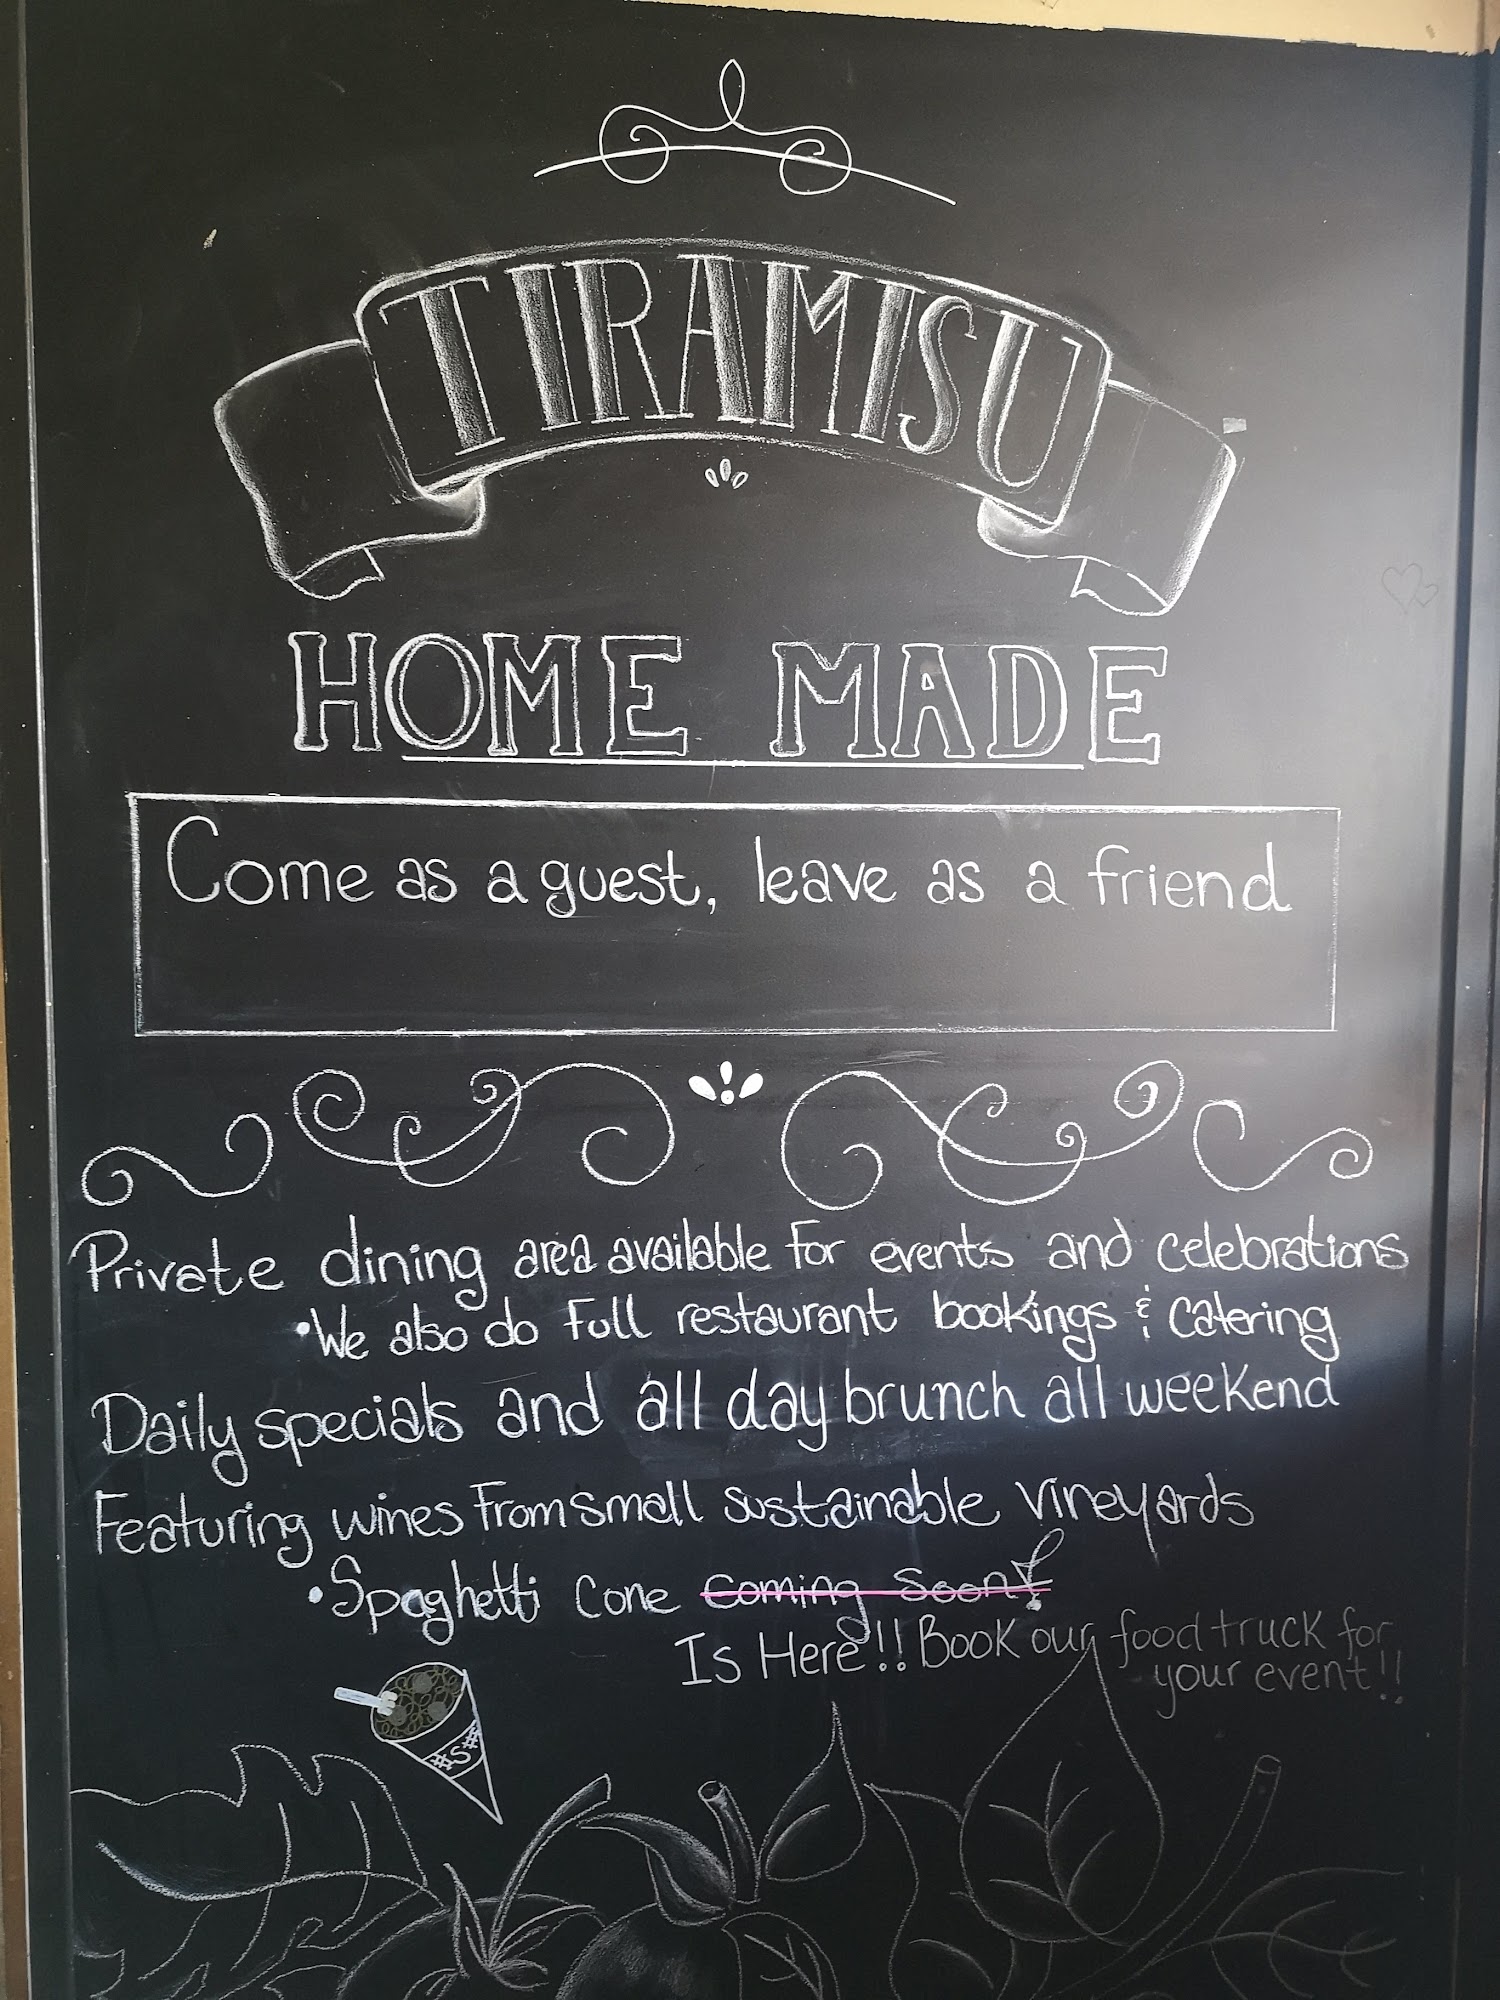 TIRAMISU
HOME MADE
Come as a guest, leave as a friend
Private dining area available for events and celebrations
•We also do full restaurant bookings & catering
Daily specials and all day brunch all weekend
Featuring wines from small sustainable vineyards
•Spaghetti Cone Coming Soon!
Is Here!! Book our food truck for
your event!!
#S#